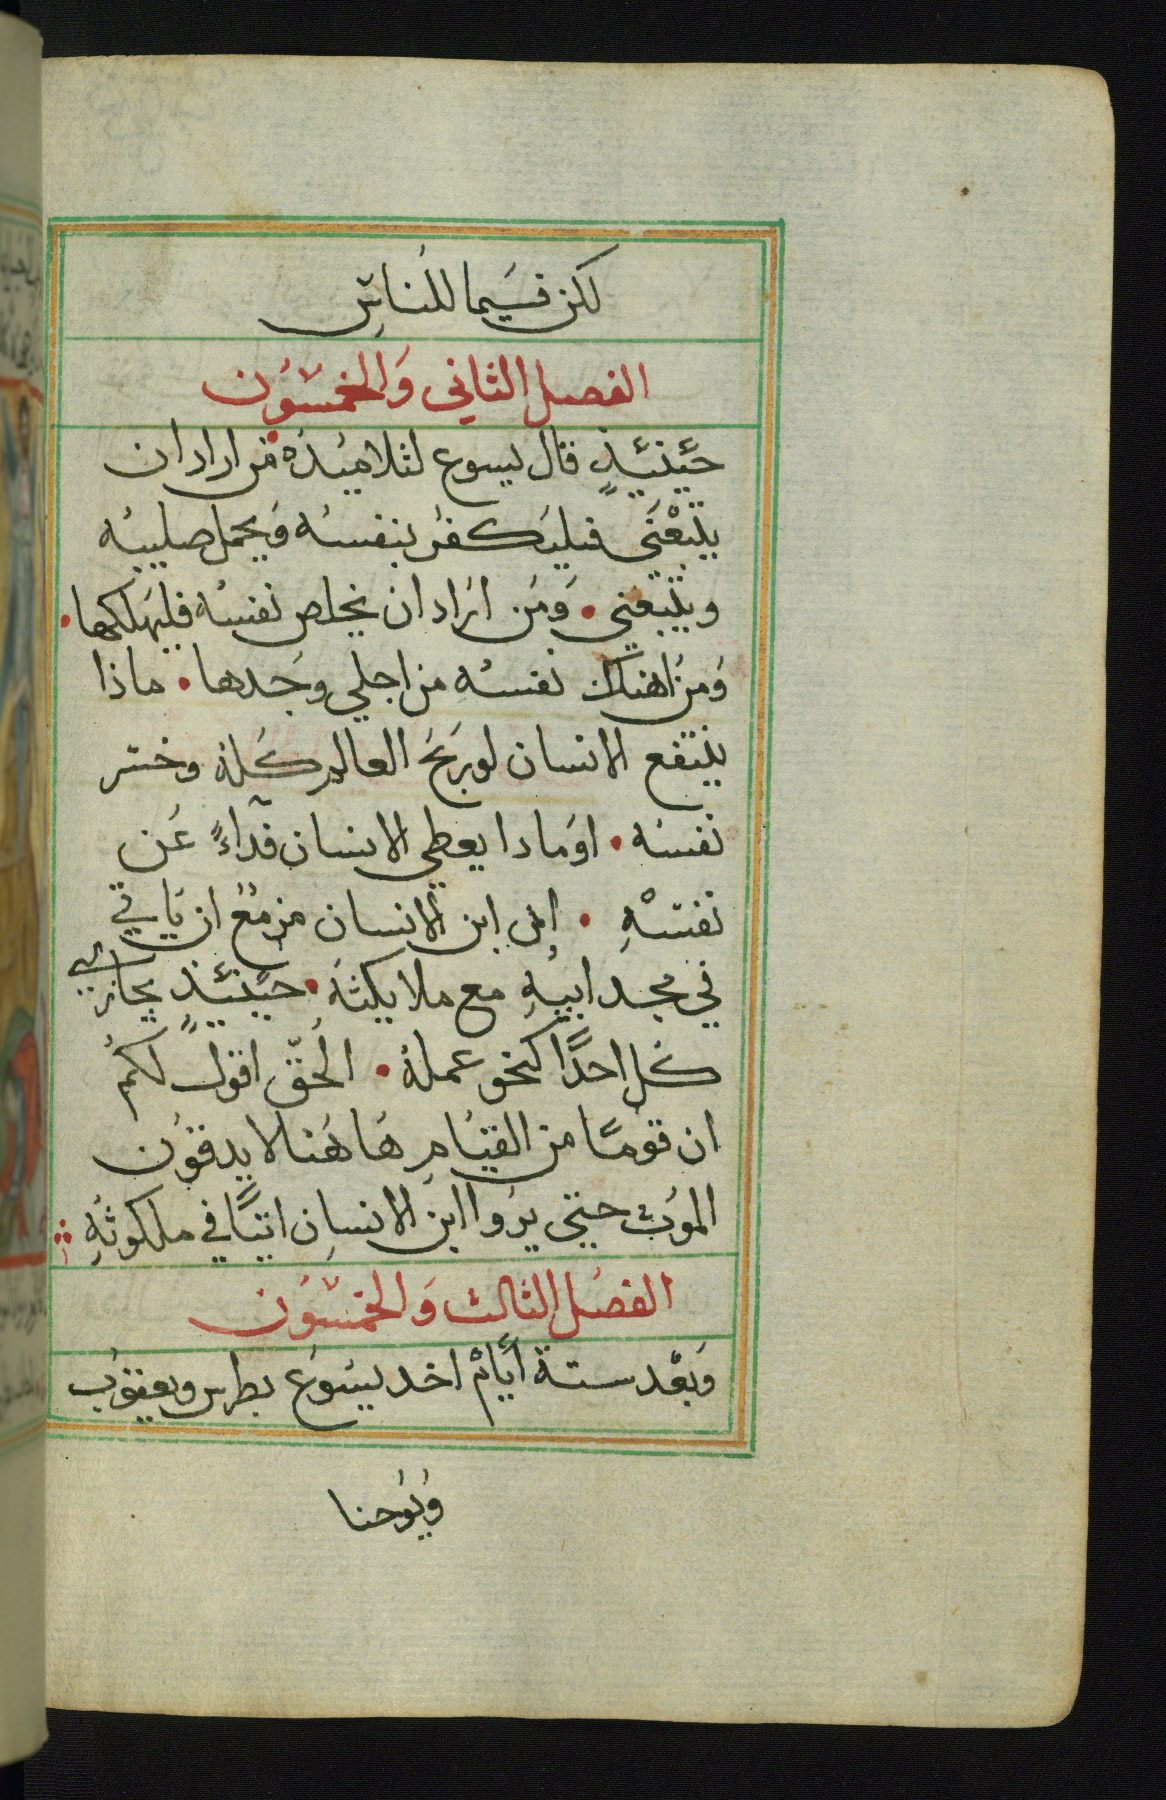 لكن فيما للناس
الفصل الثاني والخمسون
حينئيذ قال يسوع لتلاميذه من اراد ان
يتبعني فليكفر بنفسه ويحمل صليبه
ويتبعني • ومن اراد ان يخلص نفسه فليهلكها •
ومن اهلك نفسه من اجلي وجدها • ماذا
ينتفع الانسان لو ربح العالم كله وخسر
نفسه • او مادا يعطي الانسان فداءً عن
نفسه • ان ابن الانسان مزمع ان ياتي
في مجد ابيه مع ملايكته • حينئيذ يجازي
كل احدًا كنحو عمله • الحق اقول لكم
ان قومًا من القيام هاهنا لا يدقون
الموت حتي يروا ابن الانسان اتيًا في ملكوته
الفصل الثالث والخمسون
وبعد ستة ايام اخد يسوع بطرس ويعقوب
ويوحنا